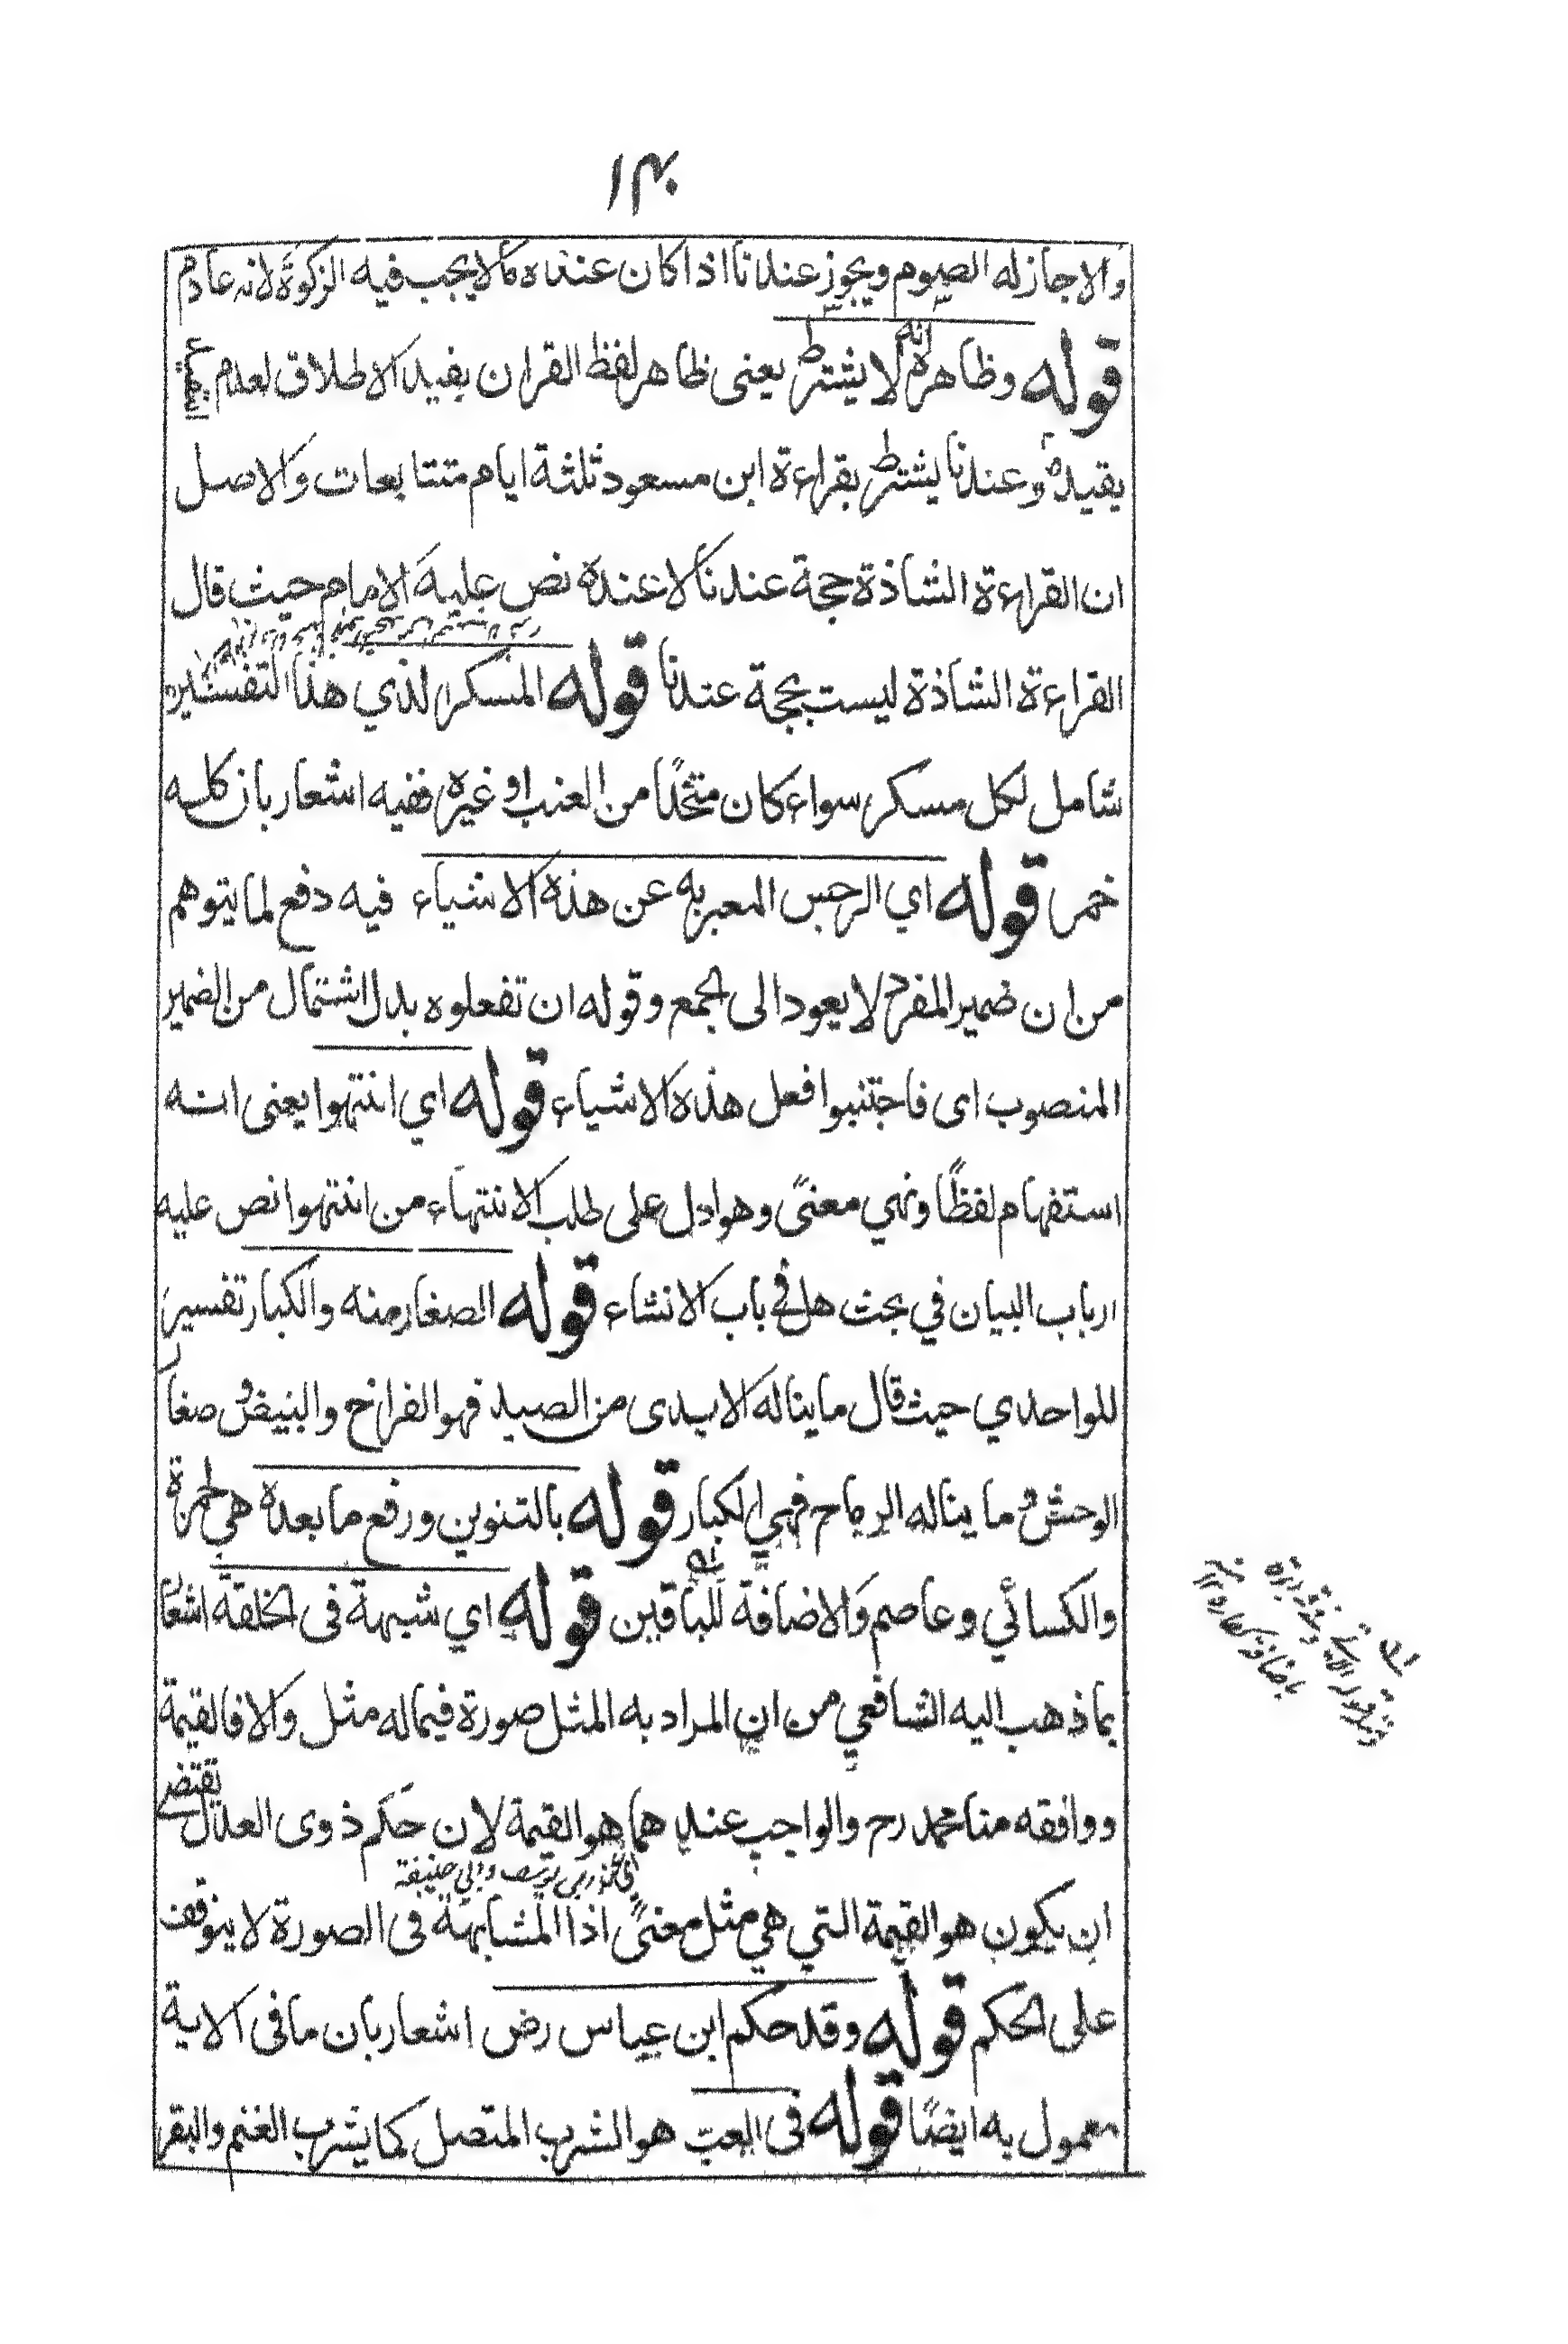 ١٣٠
والا جاز له الصوم ويجوز عندنا اذا كان عنده ما لا يجب فيه الزكوة لانه عادم
قوله وظاهره انه لا يشترط يعنى ظاهر لفظ القران يفيد الاطلاق لعدم
يقيده وعندنا يشترط بقراءة ابن مسعود ثلثة ايام متتابعات والاصل
ان القراءة الشاذة حجة عندنا لا عنده نص عليه الامام حيث قال
القراءة الشاذة ليست بحجة عندنا قوله المسكر الذي هذا التفسير
شامل لكل مسكر سواء كان متخذًا من العنب او غيره ففيه اشعار بان كله
خمر قوله اي الرجس المعبر به عن هذه الاشياء فيه دفع لما يتوهم
من ان ضمير المفرد لا يعود الى الجمع وقوله ان تفعلوه بدل اشتمال من الضمير
المنصوب اى فاجتنبوا فعل هذه الاشياء قوله اي انتهوا يعنى انه
استفهام لفظًا ونهي معنىً وهو ادل على طلب الانتهاء من انتهوا نص عليه
ارباب البيان في بحث هل في باب الانشاء قوله الصغار منه والكبار تفسير
للواحدي حيث قال ما يناله الايدى من الصيد فهو الفراخ والبيض وصغار
الوحش وما يناله الرماح فهي الكبار قوله بالتنوين ورفع ما بعده هي لحمزة
والكسائي وعاصم والاضافة للباقين قوله اي شبهة فى الخلقة اشعار
بما ذهب اليه الشافعي من ان المراد به المثل صورة فيما له مثل والا فالقيمة
ووافقه منا محمد رح والواجب عندهما هو القيمة لان حكم ذوى العدل تقتضى
اي عند ابى يوسف وابي حنيفة
ان يكون هو القيمة التي هي مثل معنىً اذا المشابهة فى الصورة لا يتوقف
على الحكم قوله وقد حكم ابن عباس رض اشعار بان ما فى الاية
معمول به ايضًا قوله فى العب هو الشرب المتصل كما يشرب الغنم والبقر